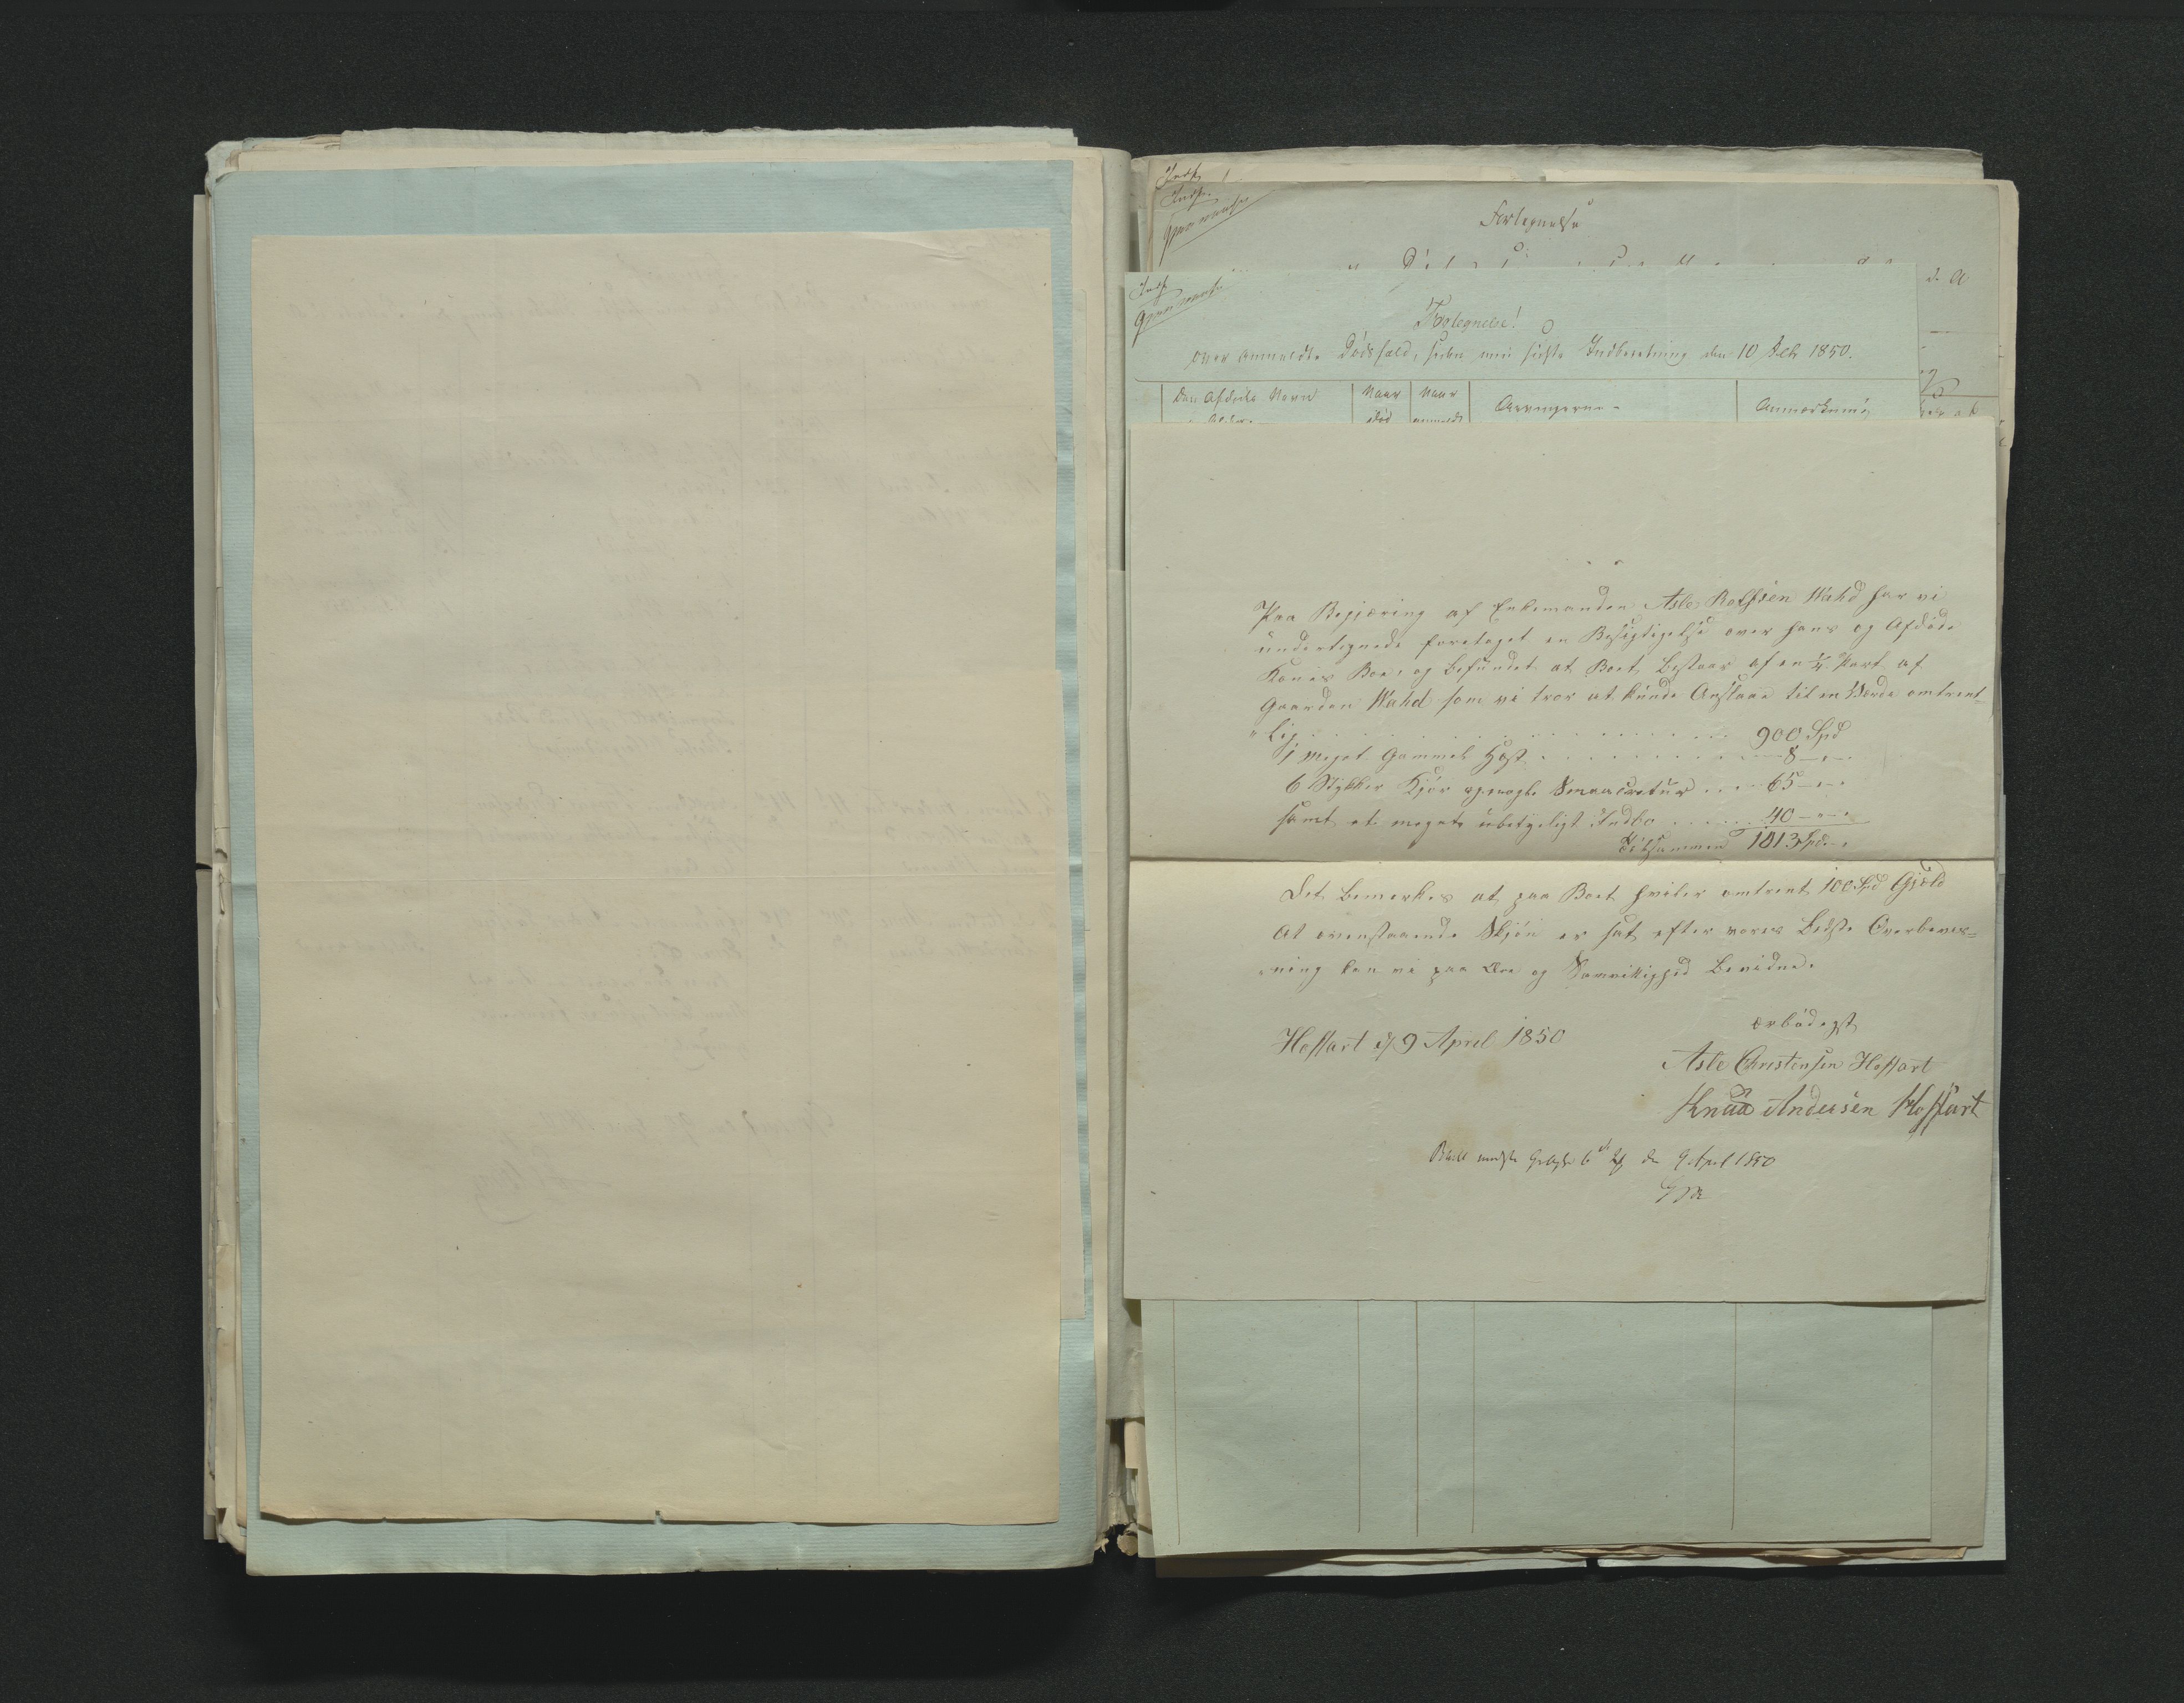 Indk
Forlegnelse
Forlegnelse!
over anmeldte Dødsfald, siden min sidste Indberetning den 10 Feb 1850.
Den Afdødes Navn
Naar
Naar
Arvingerne
Anmærkning
død
anmeldt
Paa Begjæring af Enkemanden Asle Rolfsen Wahd har vi
undertegnede foretaget en Besigtigelse over hans og Afdøde
Kones Boe, og befundet at Boet bestaar af en 1/4 Part af
Gaarden Wahd som vi tror at kunde Anslaae til en Værde omtrent-
"lig . . . 900 Spd
1 meget Gammel Hest . . . 8 - " -
6 Stykker Kjør . . . 65 - " -
samt et meget ubetydeligt Indbo . . . 40 - " -
Tilsammen 1013 Spd - "
Det bemerkes at paa Boet hviler omtrent 100 Spd Gjæld
At ovenstaaende Skjøn er sat efter vores bedste Overbeviis=
"ning kan vi paa Ære og Samvittighed bevidne.
Hoffart d/ 9 April 1850
ærbødigst
Asle Christensen Hoffart
Knud Andersen Hoffart
den 9 April 1850